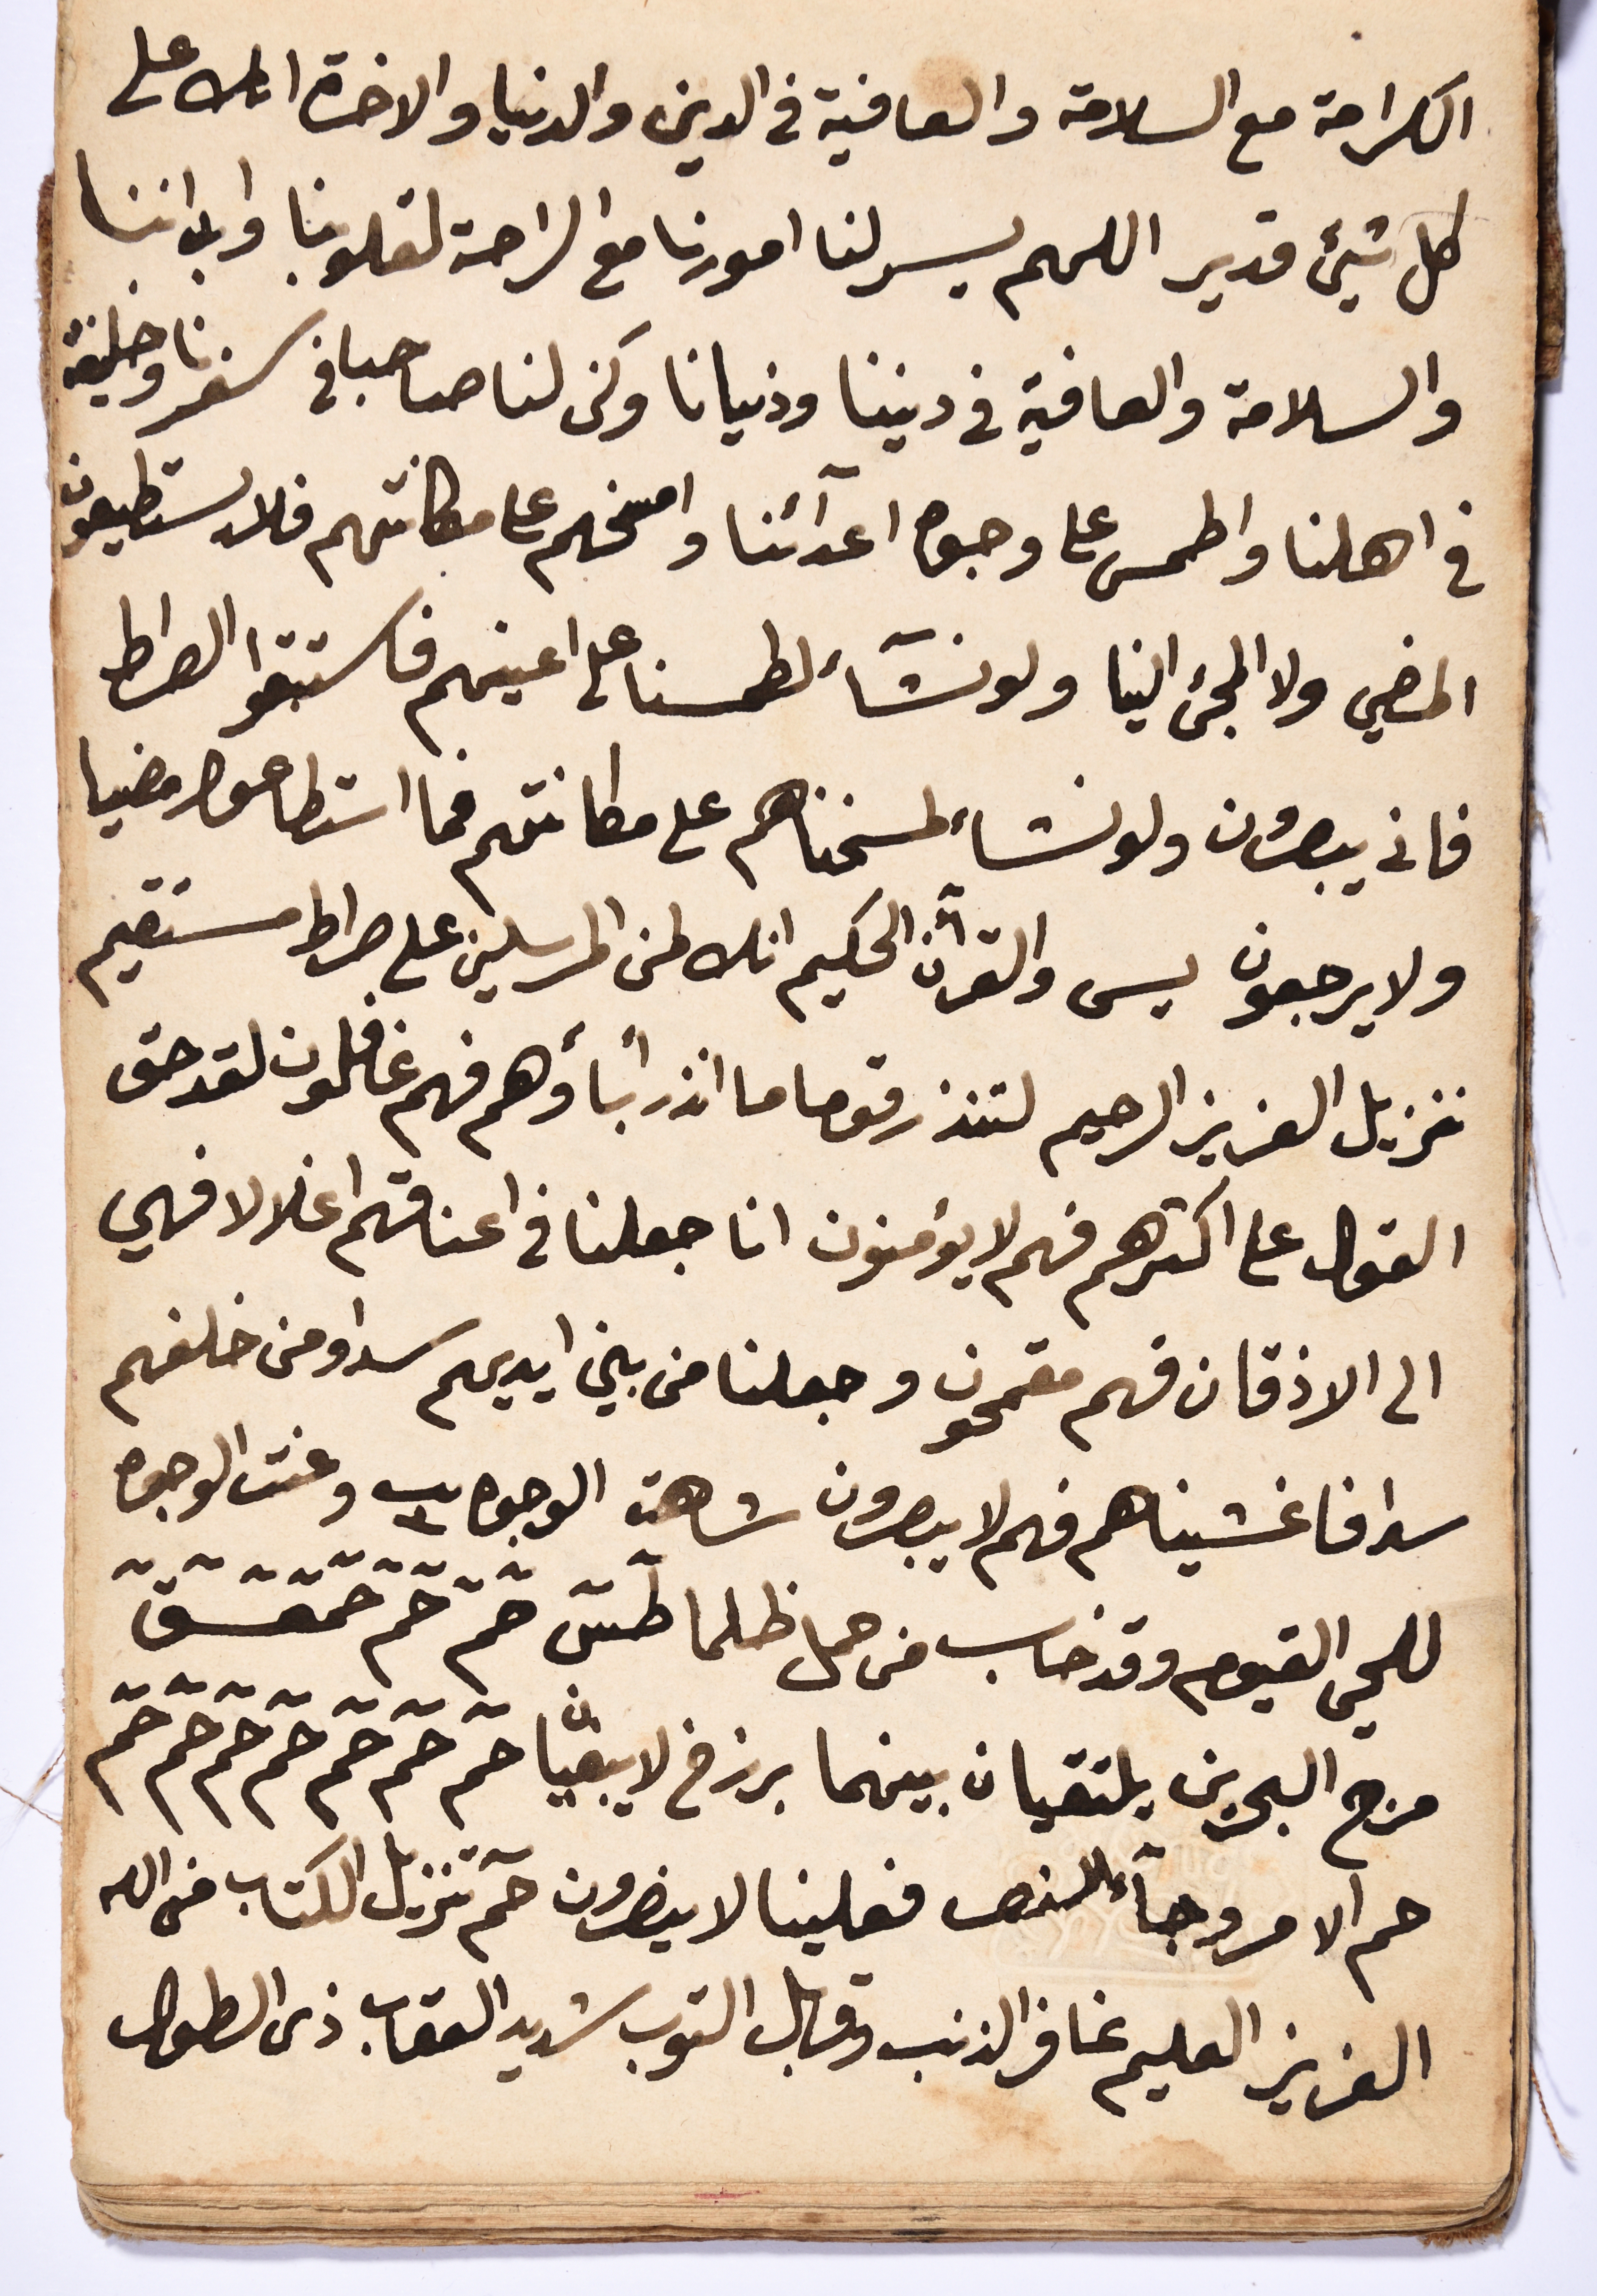 الكرامة مع السلامة والعافية في الدين والدنيا والاخرة انك على
كل شيئ قدير اللهم يسر لنا امورنا مع الراحة لقلوبنا وابداننا
والسلامة والعافية في ديننا ودنيانا وكن لنا صاحبا في سفرنا وخليفة
في اهلنا واطمس على وجوه اعدآئنا وامسخهم على مكانتهم فلا يستطيعون
المضي ولا المجئ الينا ولو نشآء لطمسنا على اعينهم فاستبقوا الصراط
فانى يبصرون ولو نشاء لمسخناهم على مكانتهم فما استطاعوا مضيا
ولا يرجعون يس والقرآن الحكيم انك لمن المرسلين على صراط مستقيم
تنزيل العزيز الرحيم لتنذر قوما ما انذر أباؤهم فهم غافلون لقد حق
القول على اكثرهم فهم لا يؤمنون انا جعلنا في اعناقهم اغلالا فهي
الى الاذقان فهم مقمحون وجعلنا من بين ايديهم سدا ومن خلفهم
سدا فاغشيناهم فهم لا يبصرون شاهت الوجوه وعنت الوجوه
للحي القيوم وقد خاب من حمل ظلما طٓسٓ حٓمٓ حٓمٓ حٓمٓعٓسٓقٓ
مرج البحرين يلتقيان بينهما برزخ لا يبغيان حٓمٓ حٓمٓ حٓمٓ حٓمٓ حٓمٓ حٓمٓ حٓمٓ
حم الامر وجآء النصر فعلينا لا ينصرون حٓمٓ تنزيل الكتاب من الله
العزيز العليم غافر الذنب وقابل التوب شديد العقاب ذى الطول